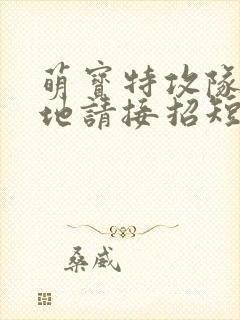 萌寶特攻隊
地請接招短
桑威